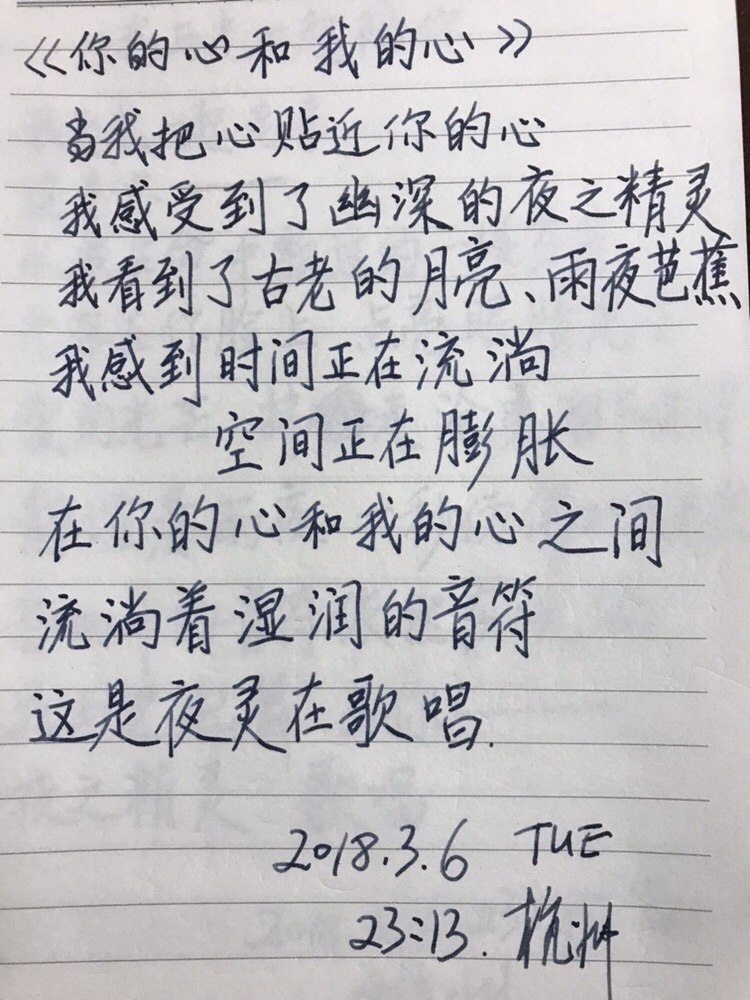 《你的心和我的心》
当我把心贴近你的心
我感受到了幽深的夜之精灵
我看到了古老的月亮、雨夜芭蕉
我感到时间正在流淌
空间正在膨胀
在你的心和我的心之间
流淌着湿润的音符
这是夜灵在歌唱.
2018.3.6 TUE
23:13. 杭州